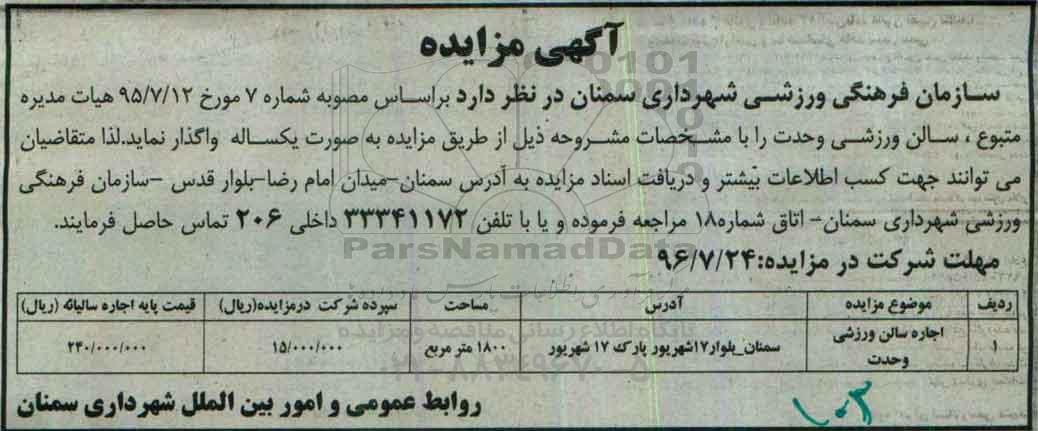 آگهی مزایده
سازمان فرهنگی ورزشی شهرداری سمنان در نظر دارد براساس مصوبه شماره ۷ مورخ ۹۵/۷/۱۲ هیات مدیره
متبوع ، سالن ورزشی وحدت را با مشخصات مشروحه ذیل از طریق مزایده به صورت یکساله واگذار نماید.لذا متقاضیان
می توانند جهت کسب اطلاعات بیشتر و دریافت اسناد مزایده به آدرس سمنان-میدان امام رضا-بلوار قدس -سازمان فرهنگی
ورزشی شهرداری سمنان- اتاق شماره۱۸ مراجعه فرموده و یا با تلفن ۳۳۳۴۱۱۷۲ داخلی ۲۰۶ تماس حاصل فرمایند.
ParsNamadData
مهلت شرکت در مزایده:۹۶/۷/۲۴
ردیف موضوع مزایده آدرس مساحت سپرده شرکت درمزایده(ریال) قیمت پایه اجاره سالیانه (ریال)
۱ اجاره سالن ورزشی وحدت سمنان_بلوار۱۷شهریور پارک ۱۷ شهریور ۱۸۰۰ متر مربع ۱۵/۰۰۰/۰۰۰ ۲۴۰/۰۰۰/۰۰۰
پایگاه اطلاع رسانی مناقصه و مزایده
۰۲۱-۸۸۳۴۹۶۷۰-۵
روابط عمومی و امور بین الملل شهرداری سمنان
۱۰۳